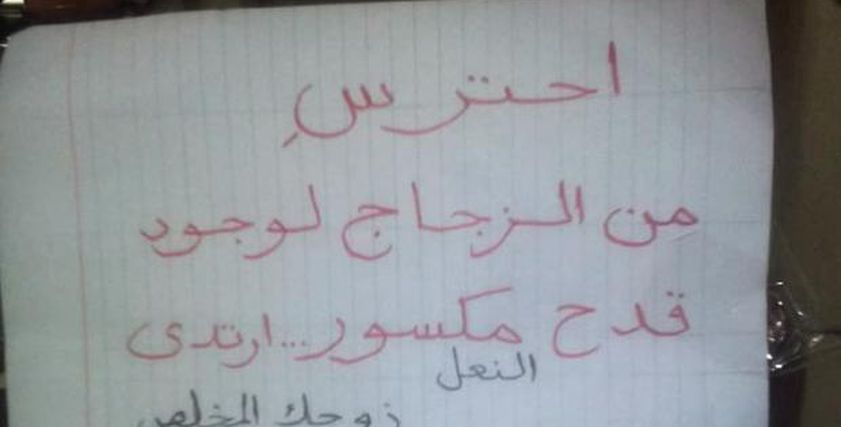 احترسِ
من الزجاج لوجود
قدح مكسور...ارتدى
النعل
زوجك المخلص